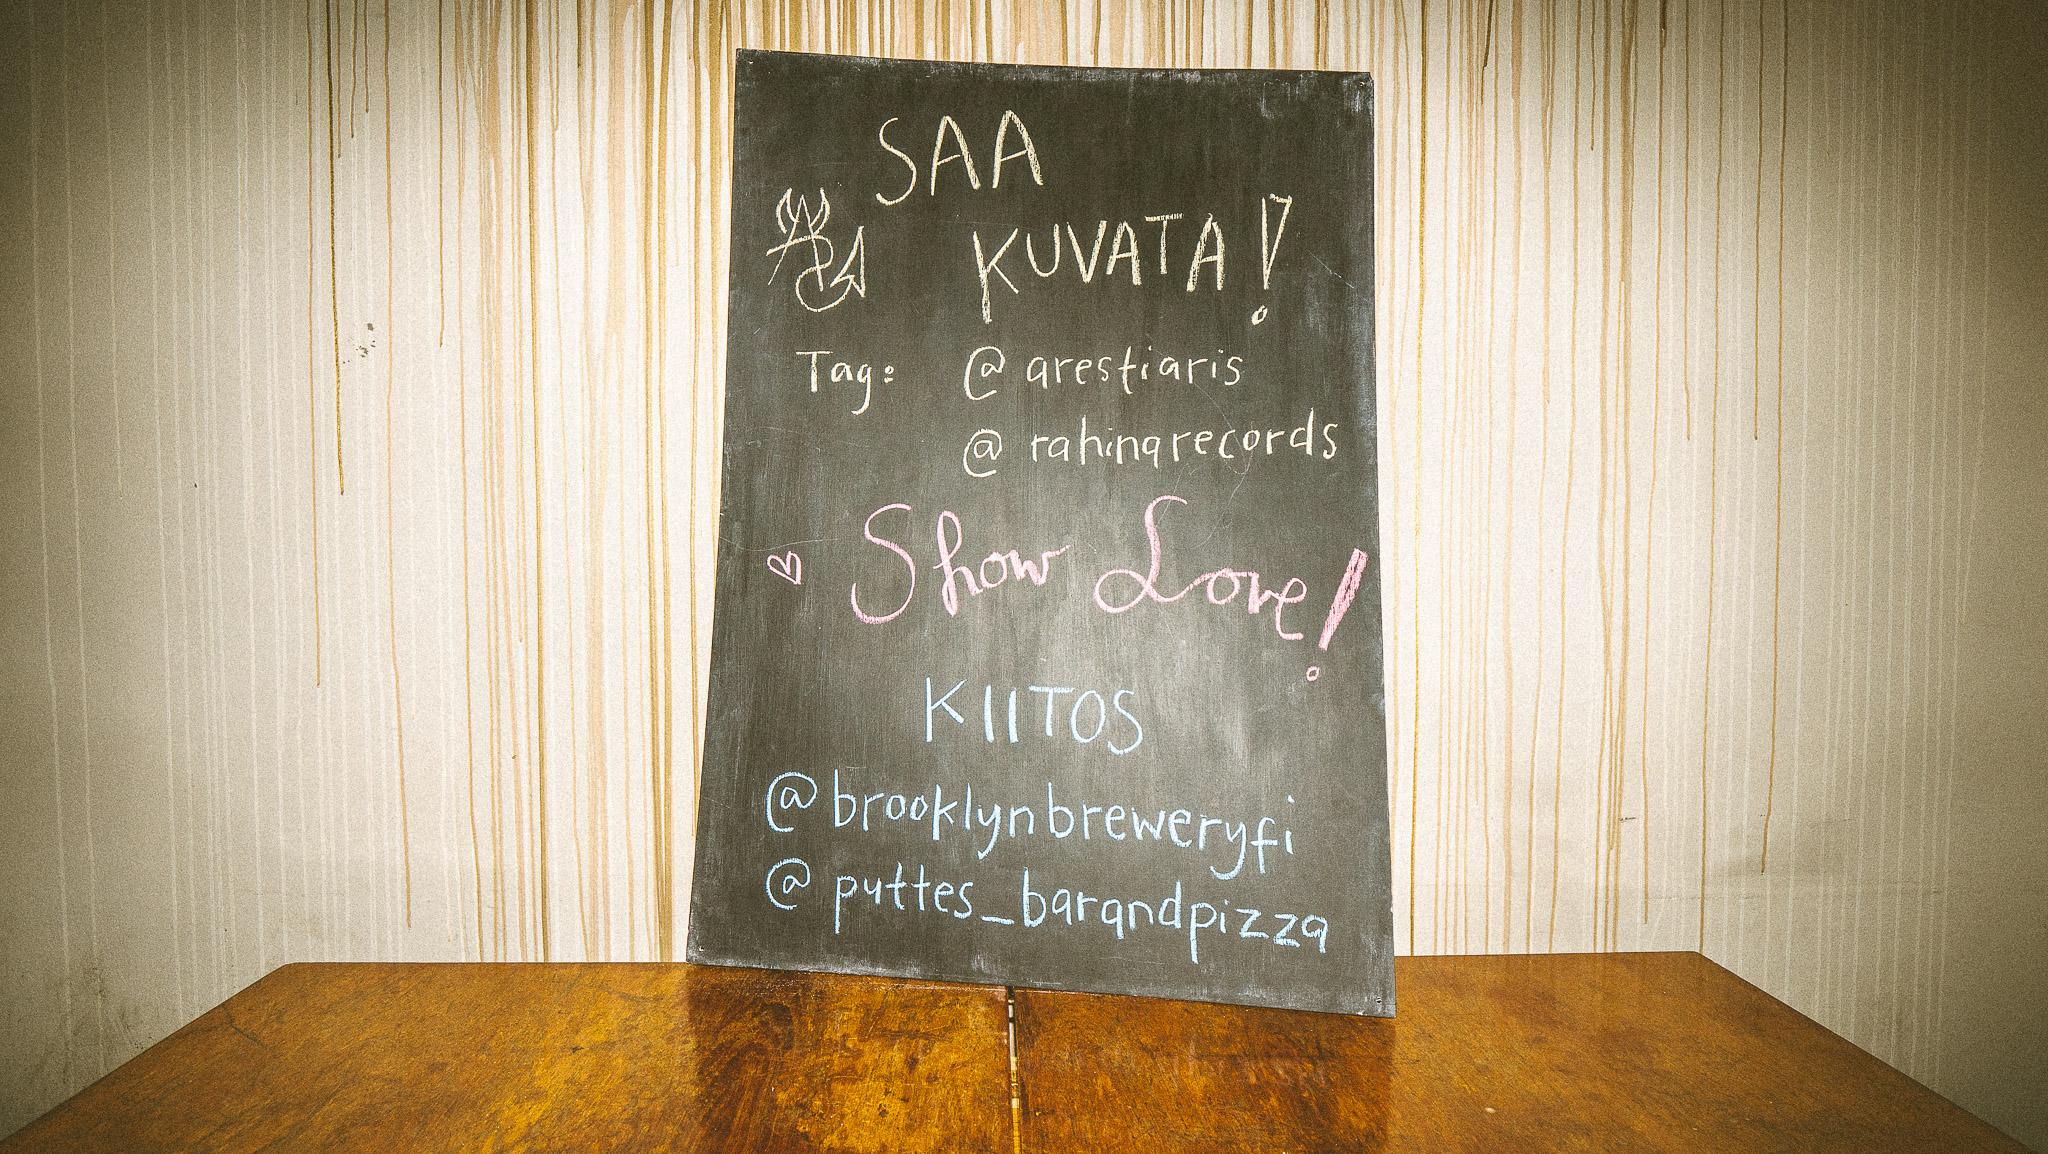 SAA
KUVATA!
Tag: @arestiaris
@rahinarecords
Show Love!
KIITOS
@brooklynbreweryfi
@puttes_barandpizza